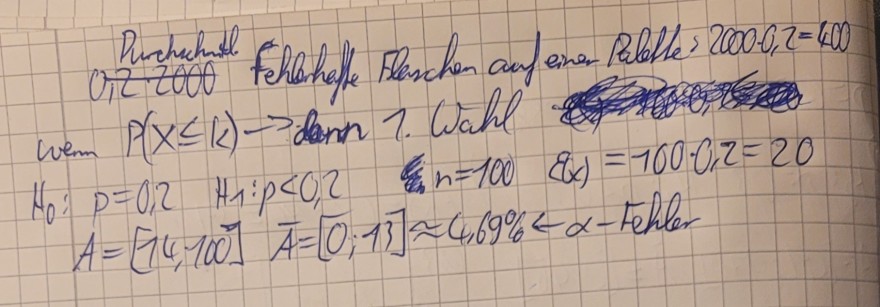 Durchschnitl
0,2 2000 Fehlerhafte Flaschen auf einer Palette: 2000·0,2=400
wenn P(X≤k) → dann 1. Wahl
H₀: p=0,2 H₁: p<0,2 n=100 E(x)=100·0,2=20
A=[14,100] Ā=[0;13]≈4,69% ← α-Fehler